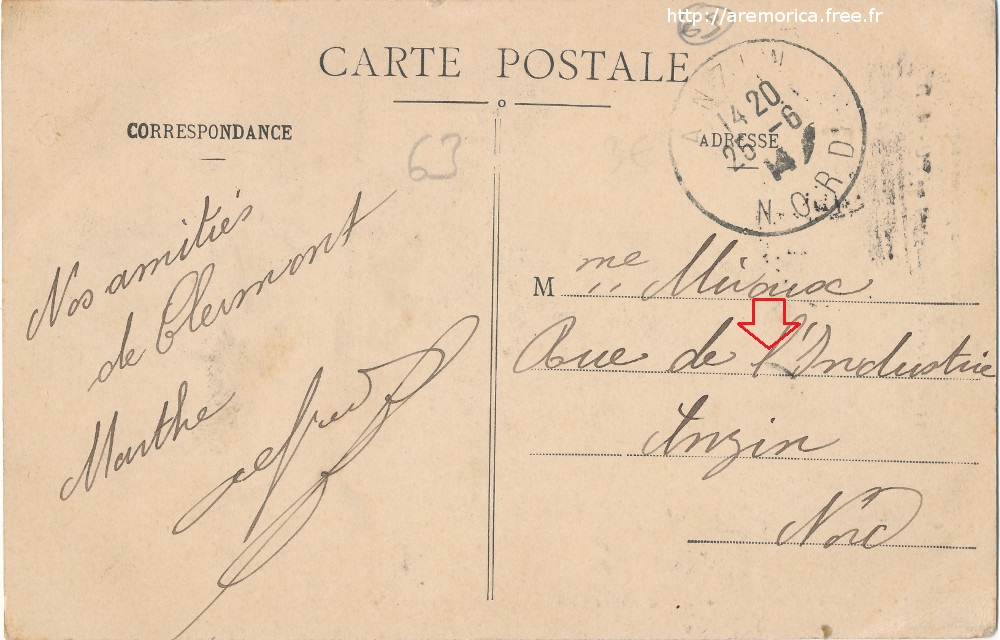 http://aremorica.free.fr
CARTE POSTALE
CORRESPONDANCE
ADRESSE
63
ANZIN
14 20
25 - 6
14
NORD
Nos amitiés
de Clermont
Marthe
Alfred
M me
Rue de l'Industrie
Anzin
Nord